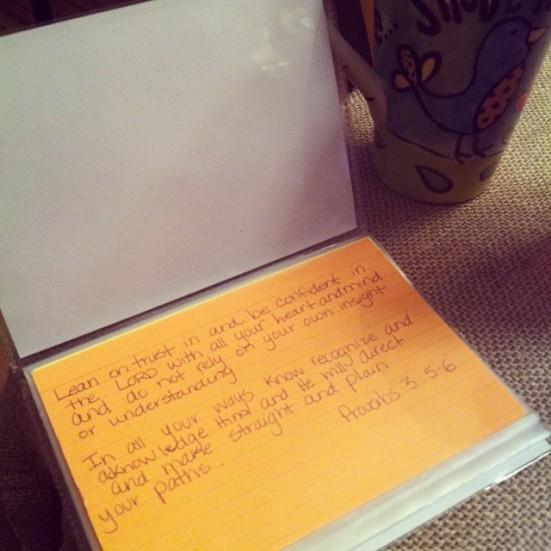 SHOUT
Lean on trust in and be confident in
the LORD with all your heart and mind
and do not rely on your own insight
or understanding
In all your ways know recognize and
acknowledge Him and He will direct
and make straight and plain
your paths.
Proverbs 3:5-6